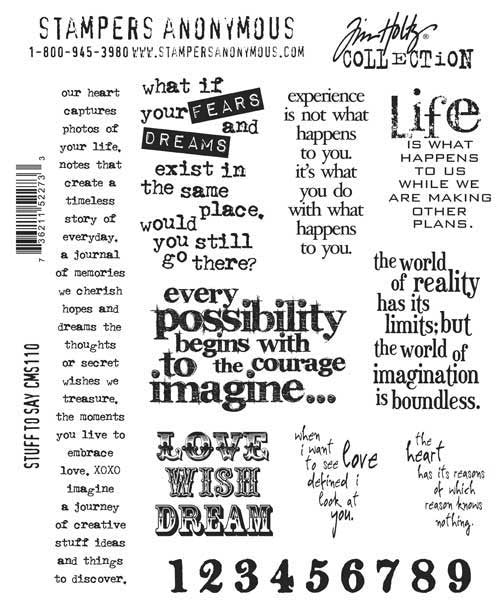 STAMPERS ANONYMOUS
1-800-945-3980 WWW.STAMPERSANONYMOUS.COM
Tim Holtz®
COLLECTION
our heart
captures
photos of
your life,
notes that
create a
timeless
story of
everyday.
a journal
of memories
we cherish
hopes and
dreams the
thoughts
or secret
wishes we
treasure,
the moments
you live to
embrace
love, XOXO
imagine
a journey
of creative
stuff ideas
and things
to discover.
7 36211 52273 3
STUFF TO SAY CMS110
what if
your FEARS
and
DREAMS
exist in
the same
place,
would
you still
go there?
experience
is not what
happens
to you.
it's what
you do
with what
happens
to you.
Life
IS WHAT
HAPPENS
TO US
WHILE WE
ARE MAKING
OTHER
PLANS.
every
possibility
begins with
.to the courage
imagine...
the world
of reality
has its
limits; but
the world of
imagination
is boundless.
LOVE
WISH
DREAM
when
i want
to see love
defined i
look at
you.
the
heart
has its reasons
of which
reason knows
nothing.
1 2 3 4 5 6 7 8 9